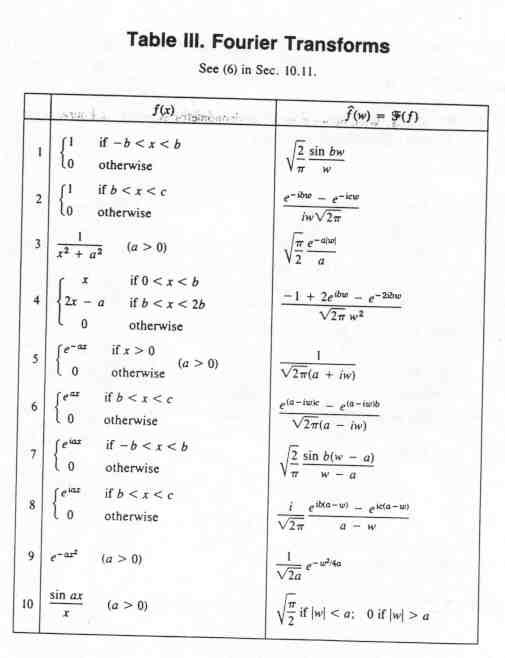 Table III. Fourier Transforms
See (6) in Sec. 10.11.
f(x) f̂(w) = 𝔉(f)
1 {1 if −b < x < b; 0 otherwise √(2/π) (sin bw)/w
2 {1 if b < x < c; 0 otherwise (e^{−ibw} − e^{−icw})/(iw√(2π))
3 1/(x² + a²) (a > 0) √(π/2) e^{−a|w|}/a
4 {x if 0 < x < b; 2x − a if b < x < 2b; 0 otherwise (−1 + 2e^{ibw} − e^{−2ibw})/(√(2π) w²)
5 {e^{−ax} if x > 0; 0 otherwise (a > 0) 1/(√(2π)(a + iw))
6 {e^{ax} if b < x < c; 0 otherwise (e^{(a−iw)c} − e^{(a−iw)b})/(√(2π)(a − iw))
7 {e^{iax} if −b < x < b; 0 otherwise √(2/π) (sin b(w − a))/(w − a)
8 {e^{iax} if b < x < c; 0 otherwise (i/√(2π)) (e^{ib(a−w)} − e^{ic(a−w)})/(a − w)
9 e^{−ax²} (a > 0) (1/√(2a)) e^{−w²/4a}
10 (sin ax)/x (a > 0) √(π/2) if |w| < a; 0 if |w| > a